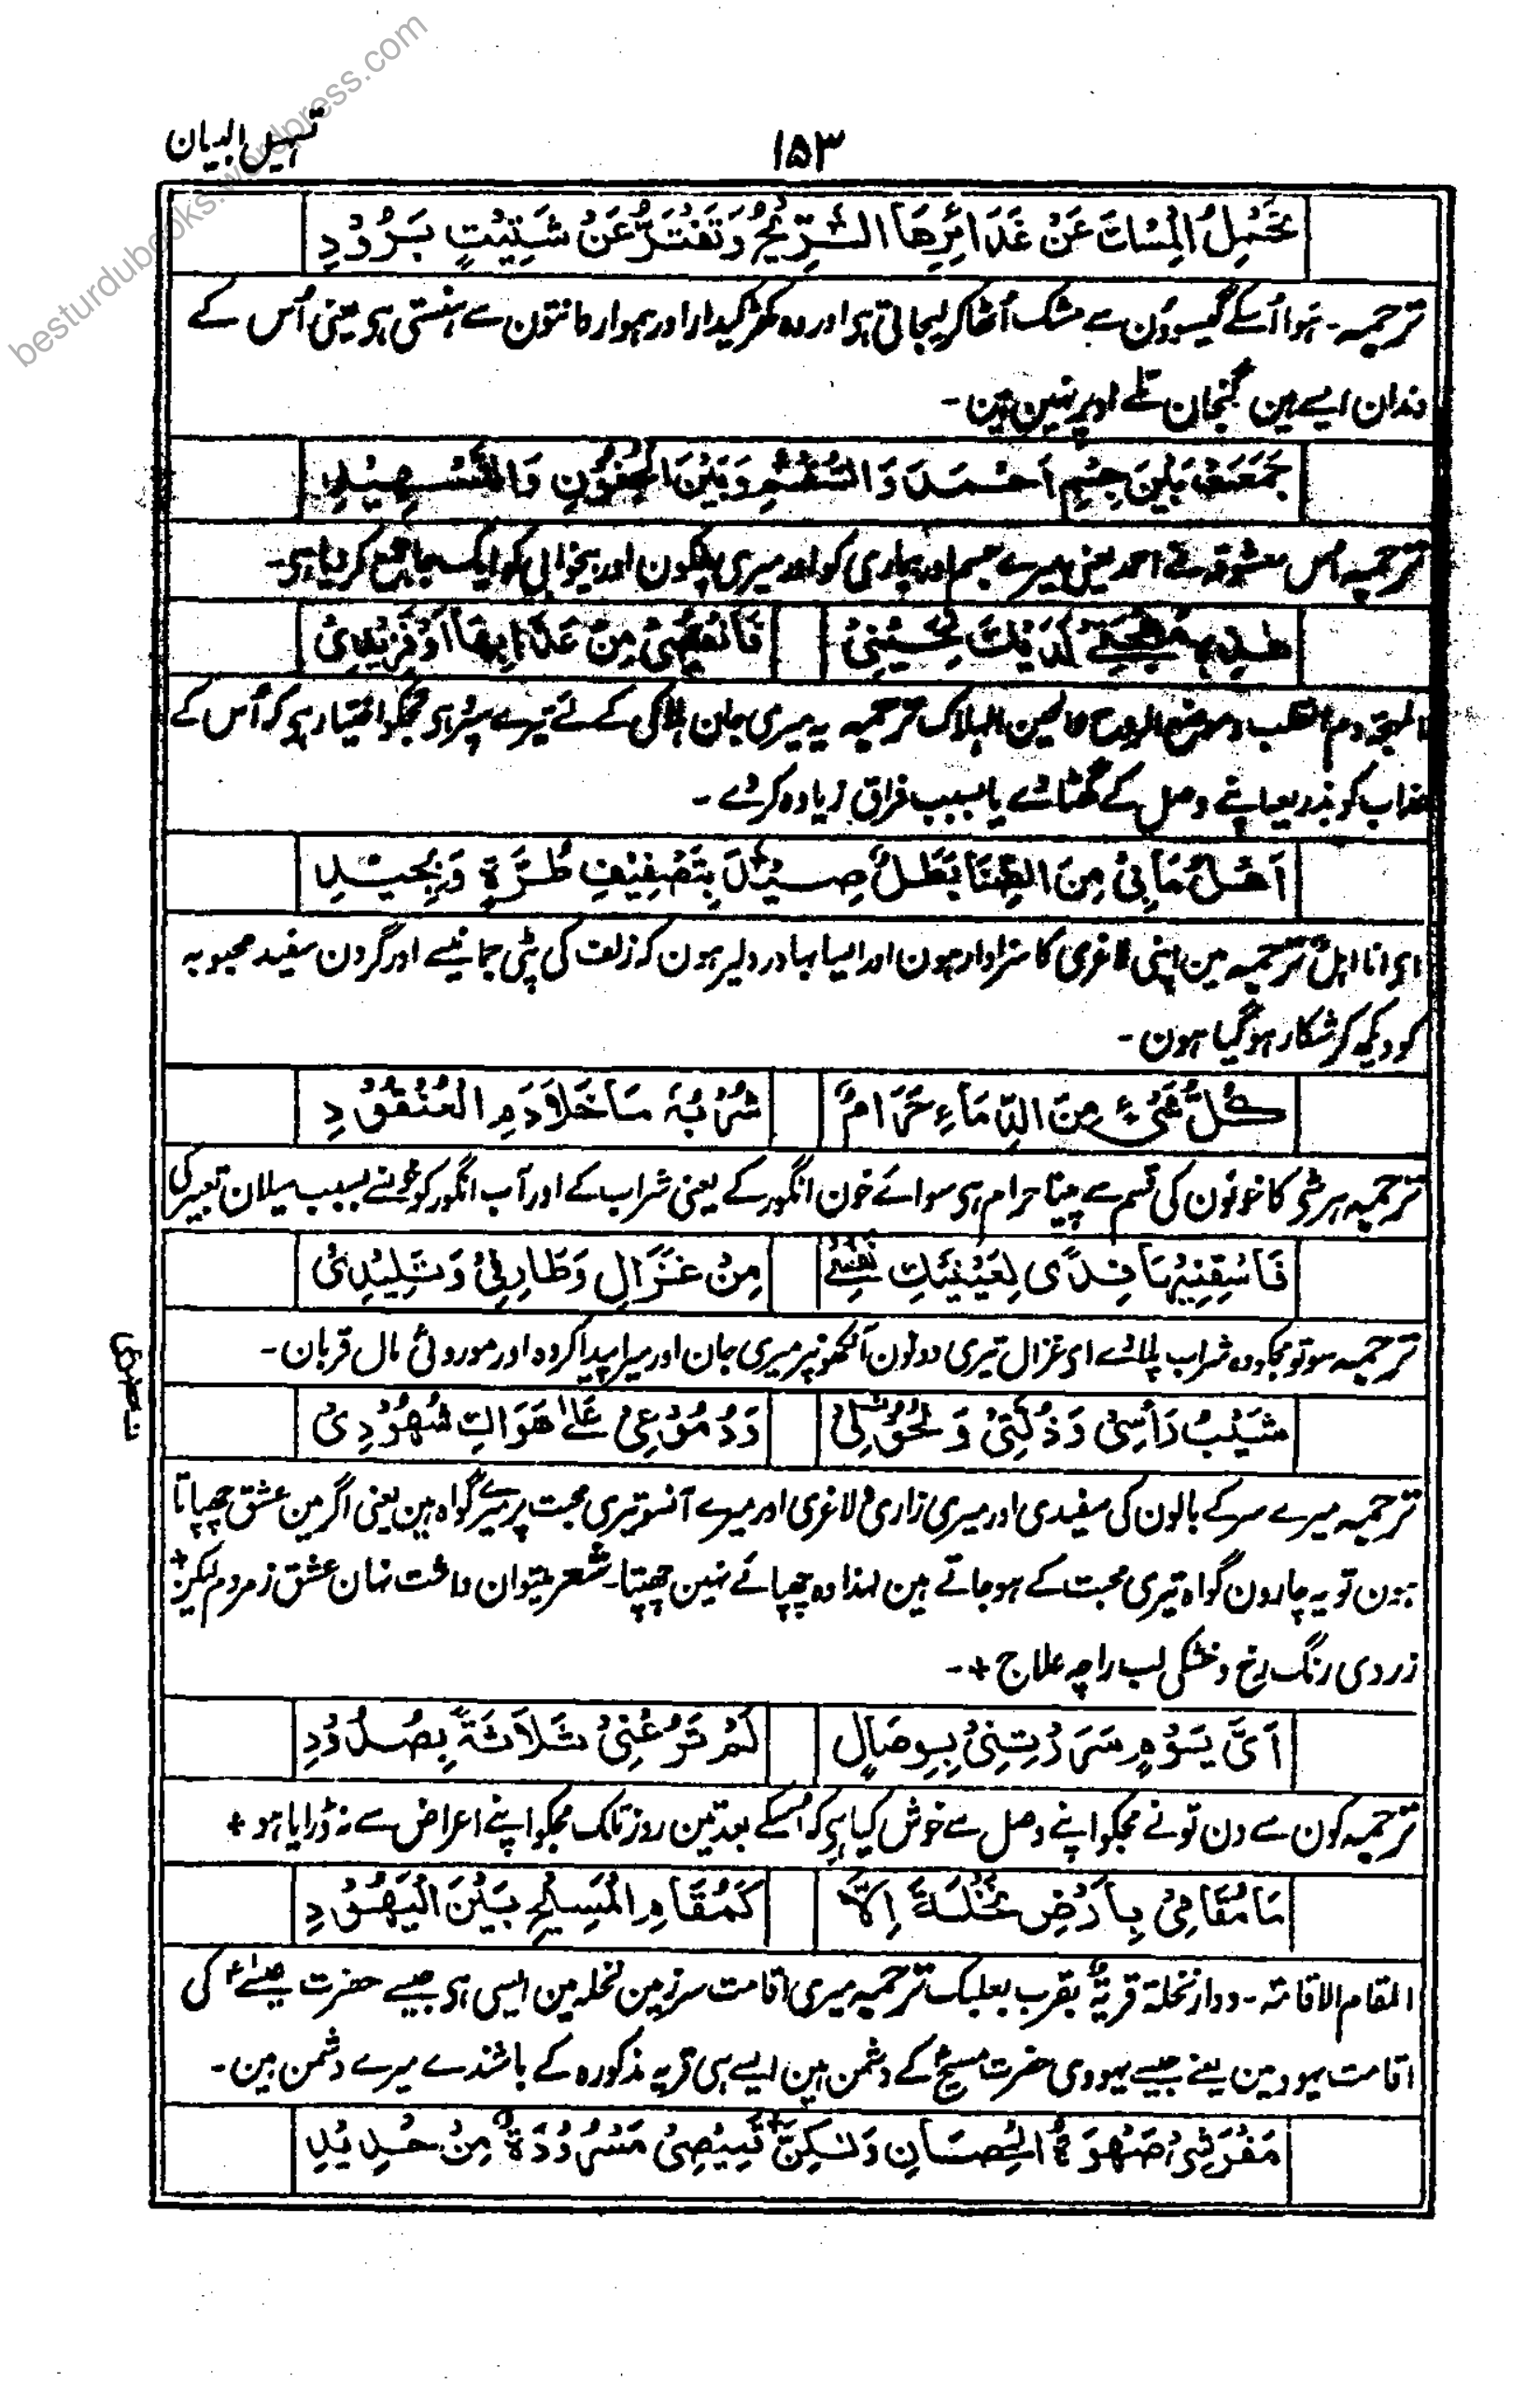 besturdubooks.wordpress.com
۱۵۳
تسہیل البیان
تَحْمِلُ الْمِسْكَ عَنْ غَدَائِرِهَا الرِّيحُ وَتَفْتَرُّ عَنْ شَتِيْتٍ بَرُوْدِ
ترجمہ۔ ہوا اُسکے گیسوؤن سے مشک اُٹھاکر لیجاتی ہی اور وہ کھڑکیدار اور ہموار دانتون سے ہنستی ہی یعنی اُس کے
دندان ایسے ہین گنجان تلے اوپر نہین ہین۔
جَمَعَتْ بَيْنَ جِسْمِ اَحْمَدَ وَالسُّقْمِ وَبَيْنَ الْجُفُوْنِ وَالتَّسْهِيْدِ
ترجمہ اُس معشوقہ نے احمد یعنی میرے جسم اور بیماری کو اور میری پلکون اور بیخوابی کو ایک جا جمع کر دیا ہی۔
هٰذِهٖ مُهْجَتِيْ لَدَيْكَ لِحَيْنِيْ
فَانْقُصِيْ مِنْ عَذَابِهَا اَوْ فَزِيْدِيْ
المہجۃ دم القلب وموضع الروح والحین الہلاک ترجمہ یہ میری جان ہلاکی کے لئے تیرے پاس ہی تجھکو اختیار ہی کہ اُس کے
عذاب کو بذریعہ اپنے وصل کے گھٹا دے یا بسبب فراق زیادہ کر دے۔
اَهْلُ مَا بِيْ مِنَ الضَّنَا بَطَلٌ صِيْدَ بِتَصْفِيْفِ طُرَّةٍ وَبِجِيْدِ
ای انا اہلٌ ترجمہ مین اپنی لاغری کا سزاوار ہون اور ایسا بہادر دلیر ہون کہ زلف کی پٹی جمانیسے اور گردن سفید محبوبہ
کو دیکھ کر شکار ہو گیا ہون۔
كُلُّ شَيْءٍ مِنَ الدِّمَاءِ حَرَامٌ
شُرْبُهٗ مَا خَلَا دَمِ الْعُنْقُوْدِ
ترجمہ ہر شی کا خونون کی قسم سے پینا حرام ہی سوائے خون انگور کے یعنی شراب کے اور آب انگور کو خونسے بسبب سیلان تعبیر کی
فَاسْقِنِيْهَا فِدًى لِعَيْنَيْكِ نَفْسِيْ
مِنْ غَزَالٍ وَطَارِفِيْ وَتَلِيْدِيْ
ترجمہ سو تو مجکو وہ شراب پلا دے ای غزال تیری دونون آنکھونپر میری جان اور میرا پیدا کردہ اور موروثی مال قربان۔
شَيْبُ رَأْسِيْ وَذُلَّتِيْ وَنُحُوْلِيْ
وَدُمُوْعِيْ عَلٰى هَوَاكِ شُهُوْدِيْ
ترجمہ میرے سر کے بالون کی سفیدی اور میری زاری و لاغری اور میرے آنسو تیری محبت پر میرے گواہ ہین یعنی اگر مین عشق چھپاتا
ہون تو یہ چارون گواہ تیری محبت کے ہو جاتے ہین لہذا وہ چھپائے نہین چھپتا۔ شعر میتوان داشت نہان عشق زمردم لیکن+
زردی رنگ رخ و خشکی لب را چہ علاج +۔
اَيَّ يَوْمٍ سَرَرْتِنِيْ بِوِصَالٍ
لَمْ تَرُعْنِيْ ثَلَاثَةً بِصُدُوْدِ
ترجمہ کون سے دن تونے مجکو اپنے وصل سے خوش کیا ہی کہ اُسکے بعد تین روز تک مجکو اپنے اعراض سے نہ ڈرایا ہو +
مَا مُقَامِيْ بِاَرْضِ نَخْلَةَ اِلَّا
كَمُقَامِ الْمَسِيْحِ بَيْنَ الْيَهُوْدِ
المقام الاقامۃ۔ ودار نخلۃ قریۃٌ بقرب بعلبک ترجمہ میری اقامت سرزمین نخلہ مین ایسی ہی جیسے حضرت عیسےٰ ؑ کی
اقامت یہود مین یعنے جیسے یہودی حضرت مسیحؑ کے دشمن ہین ایسے ہی قریہ مذکورہ کے باشندے میرے دشمن ہین۔
مَفْرَشِيْ صَهْوَةُ الْحِصَانِ وَلٰكِنَّ قَمِيْصِيْ مَسْرُوْدَةٌ مِنْ حَدِيْدِ